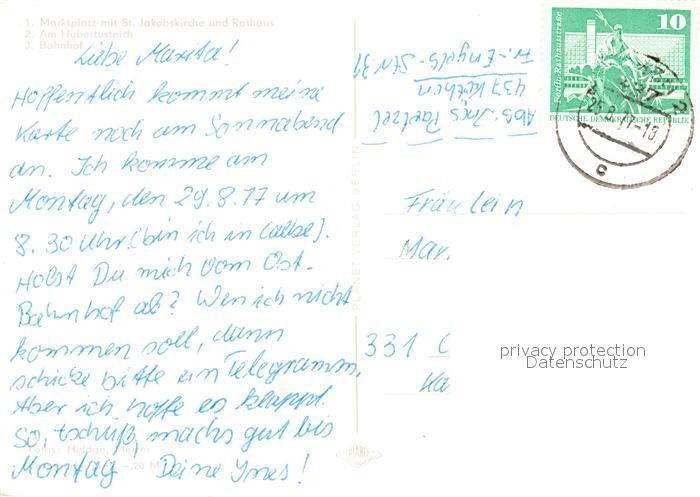 1. Marktplatz mit St. Jakobskirche und Rathaus
2. Am Hubertusteich
3. Bahnhof
Liebe Marita!
Hoffentlich kommt meine
Karte noch am Sonnabend
an. Ich komme am
Montag, den 29.8.77 um
8.30 Uhr (bin ich in Calbe).
Holst Du mich vom Ost-
Bahnhof ab? Wenn ich nicht
kommen soll, dann
schicke bitte ein Telegramm.
Aber ich hoffe es klappt.
So, tschüß, machs gut bis
Montag! Deine Ines!
PLANET-VERLAG BERLIN
Abs. Ines
437 Köthen
Fr.-Engels-Str. 31
10
Berlin, Rathausstraße
DEUTSCHE DEMOKRATISCHE REPUBLIK
437
c
Fräulein
Mar
331 C
privacy protection
Datenschutz
PLANET